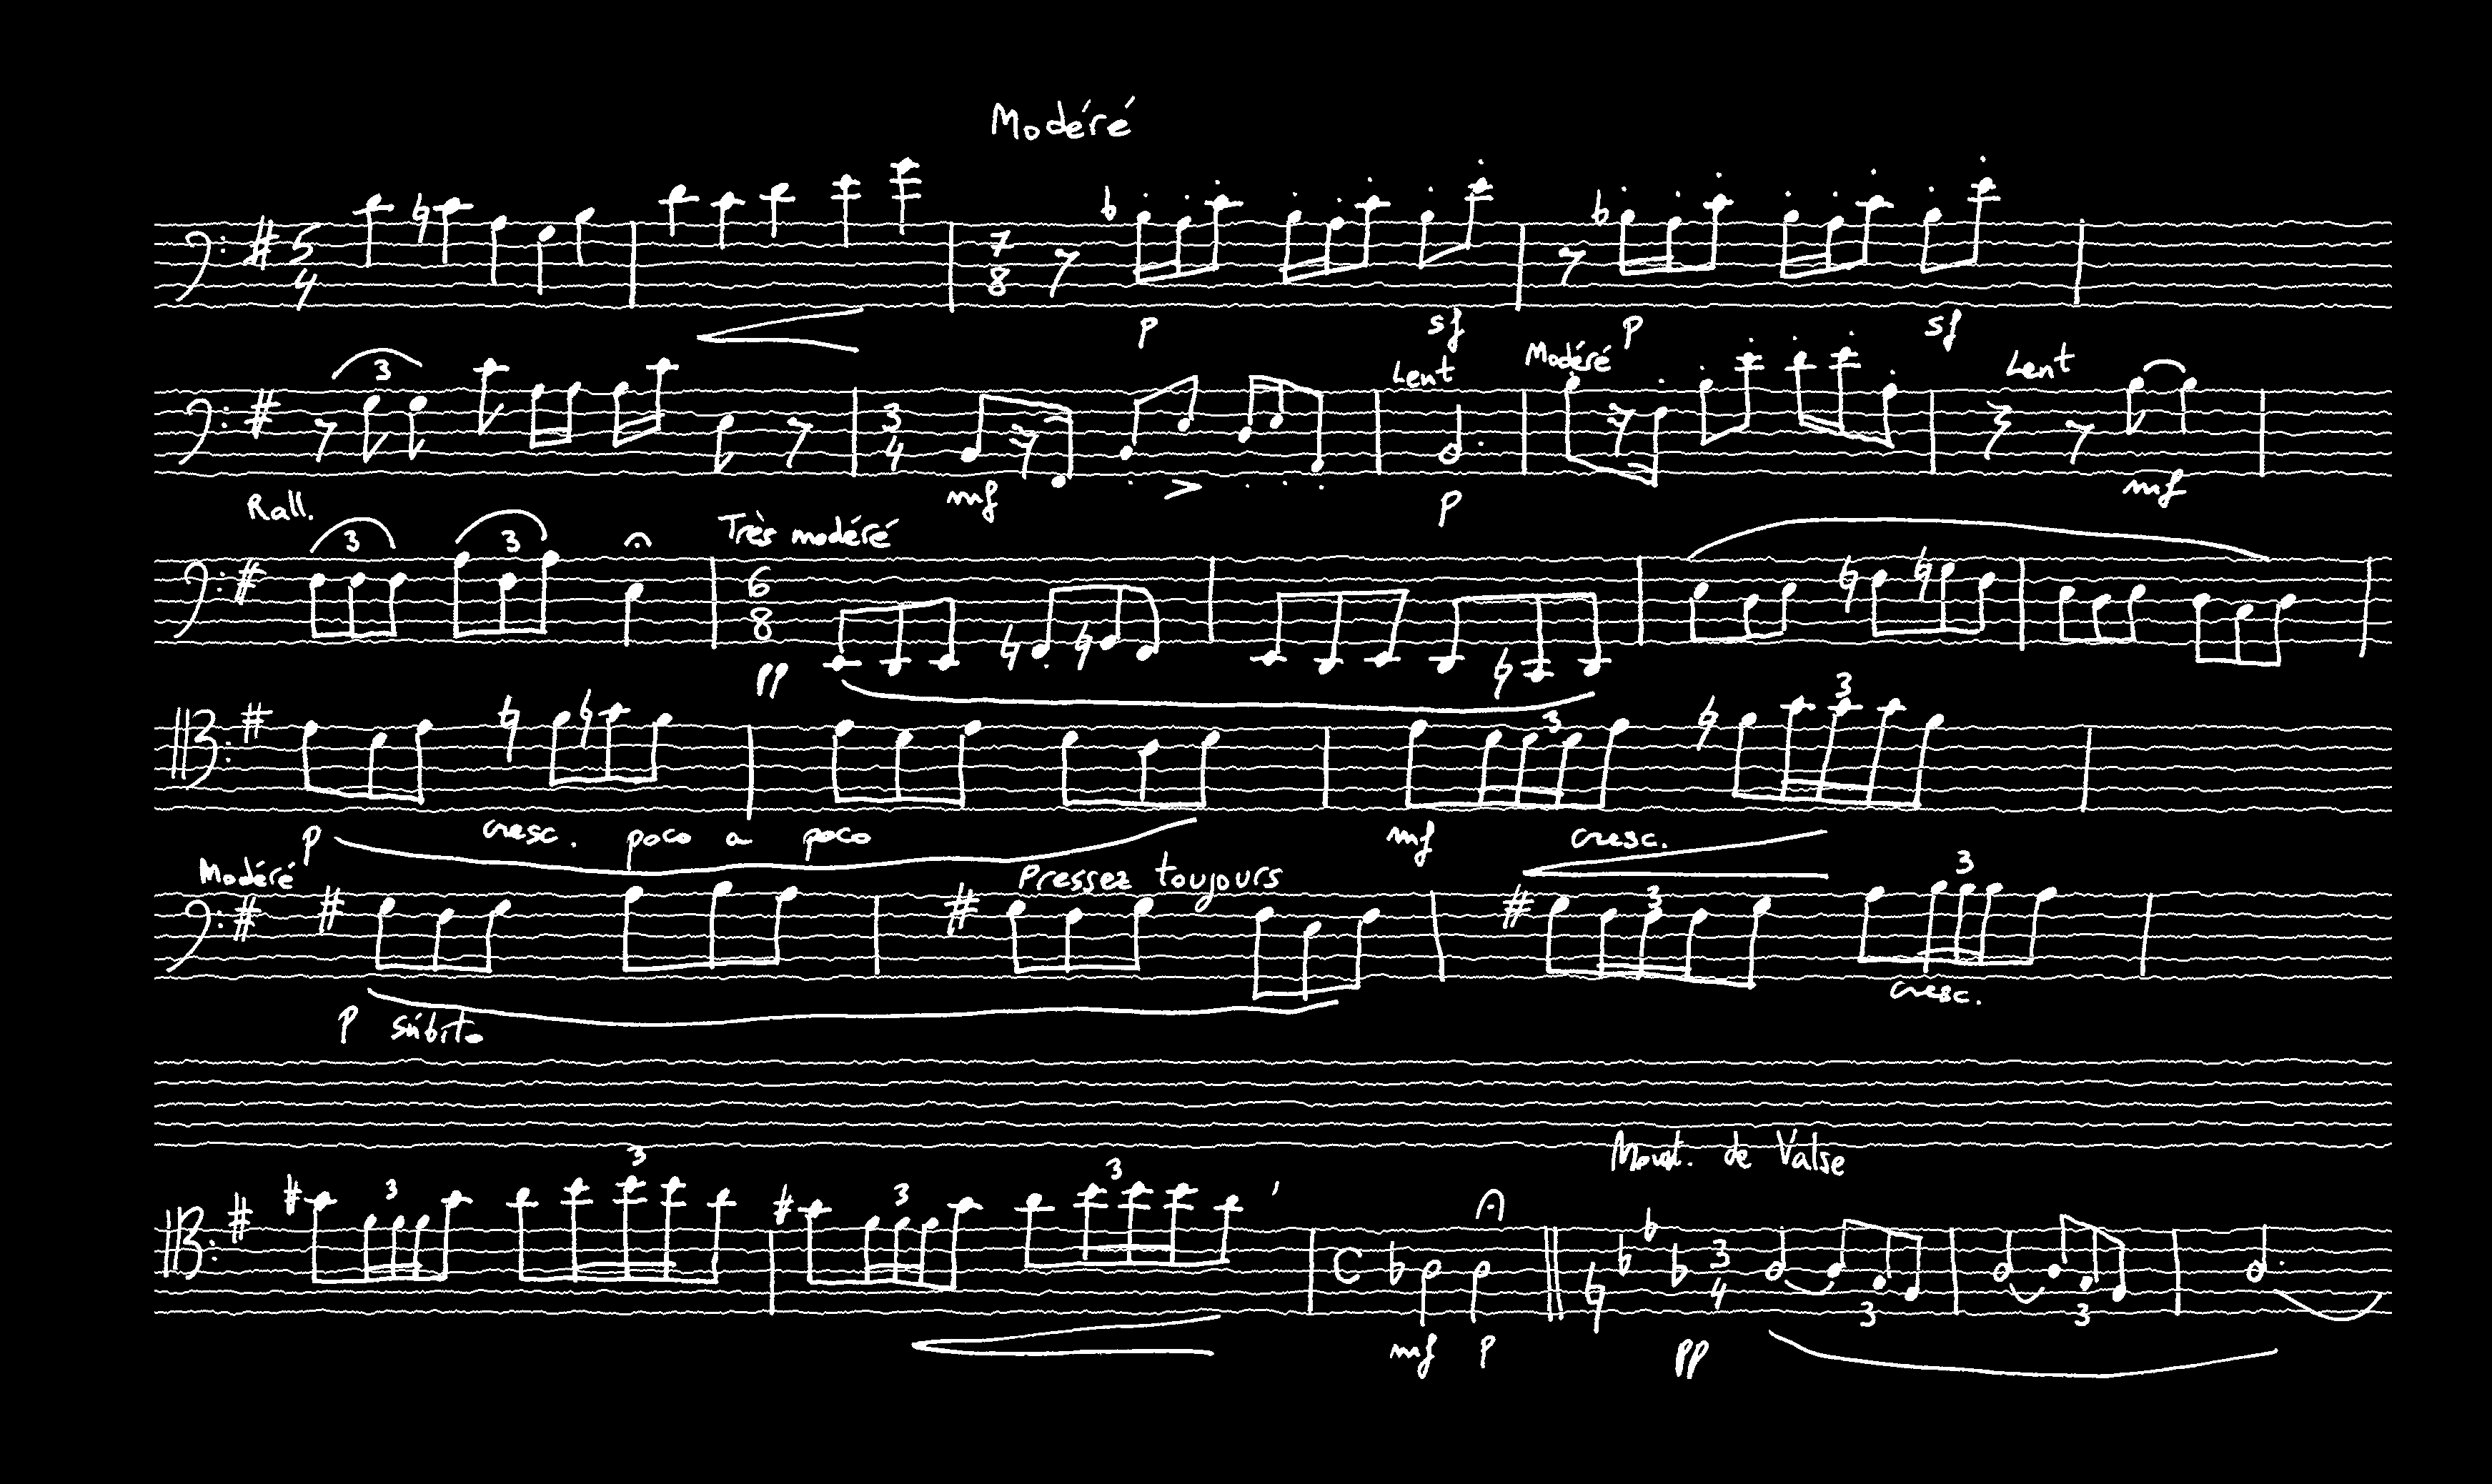 Modéré
5 4 7 8
p sf p sf
3 Lent Modéré Lent
3 4
mf p mf
Rall.
3 3 Très modéré
6 8
pp
3 3
p cresc. poco a poco mf cresc.
Modéré Pressez toujours 3 3
cresc.
p súbito
Mouvt. de Valse
3 3 3 3
C 3 4
3 3
mf p pp